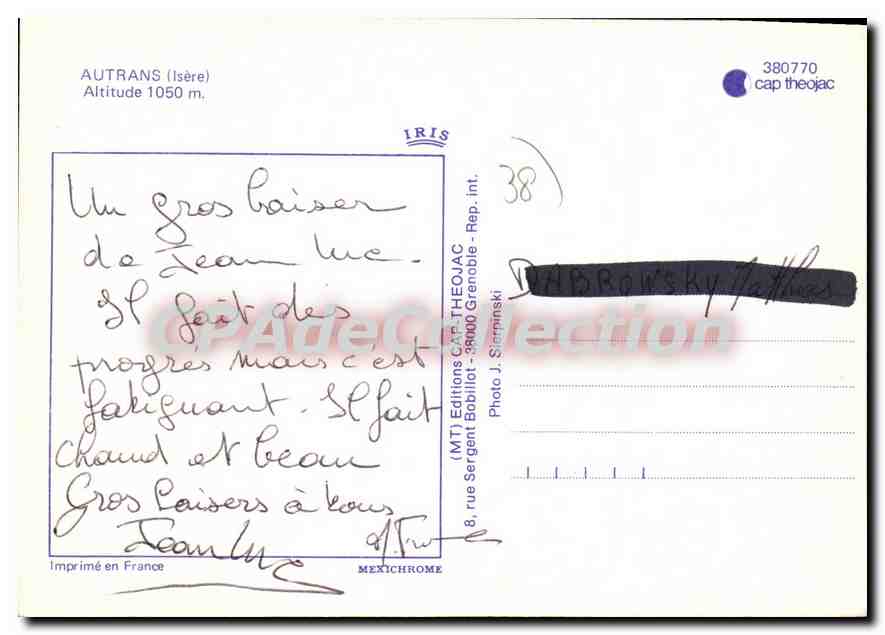 AUTRANS (Isère)
Altitude 1050 m.
380770
cap theojac
IRIS
Un gros baiser
de Jean Luc.
Il fait des
progrès mais c'est
fatiguant. Il fait
chaud et beau
Gros baisers à tous
Jean Luc
Imprimé en France
MEXICHROME
(MT) Editions CAP-THEOJAC
8, rue Sergent Bobillot - 38000 Grenoble - Rep. int.
Photo J. Sierpinski
38
DABROWSKY
CPAdeCollection